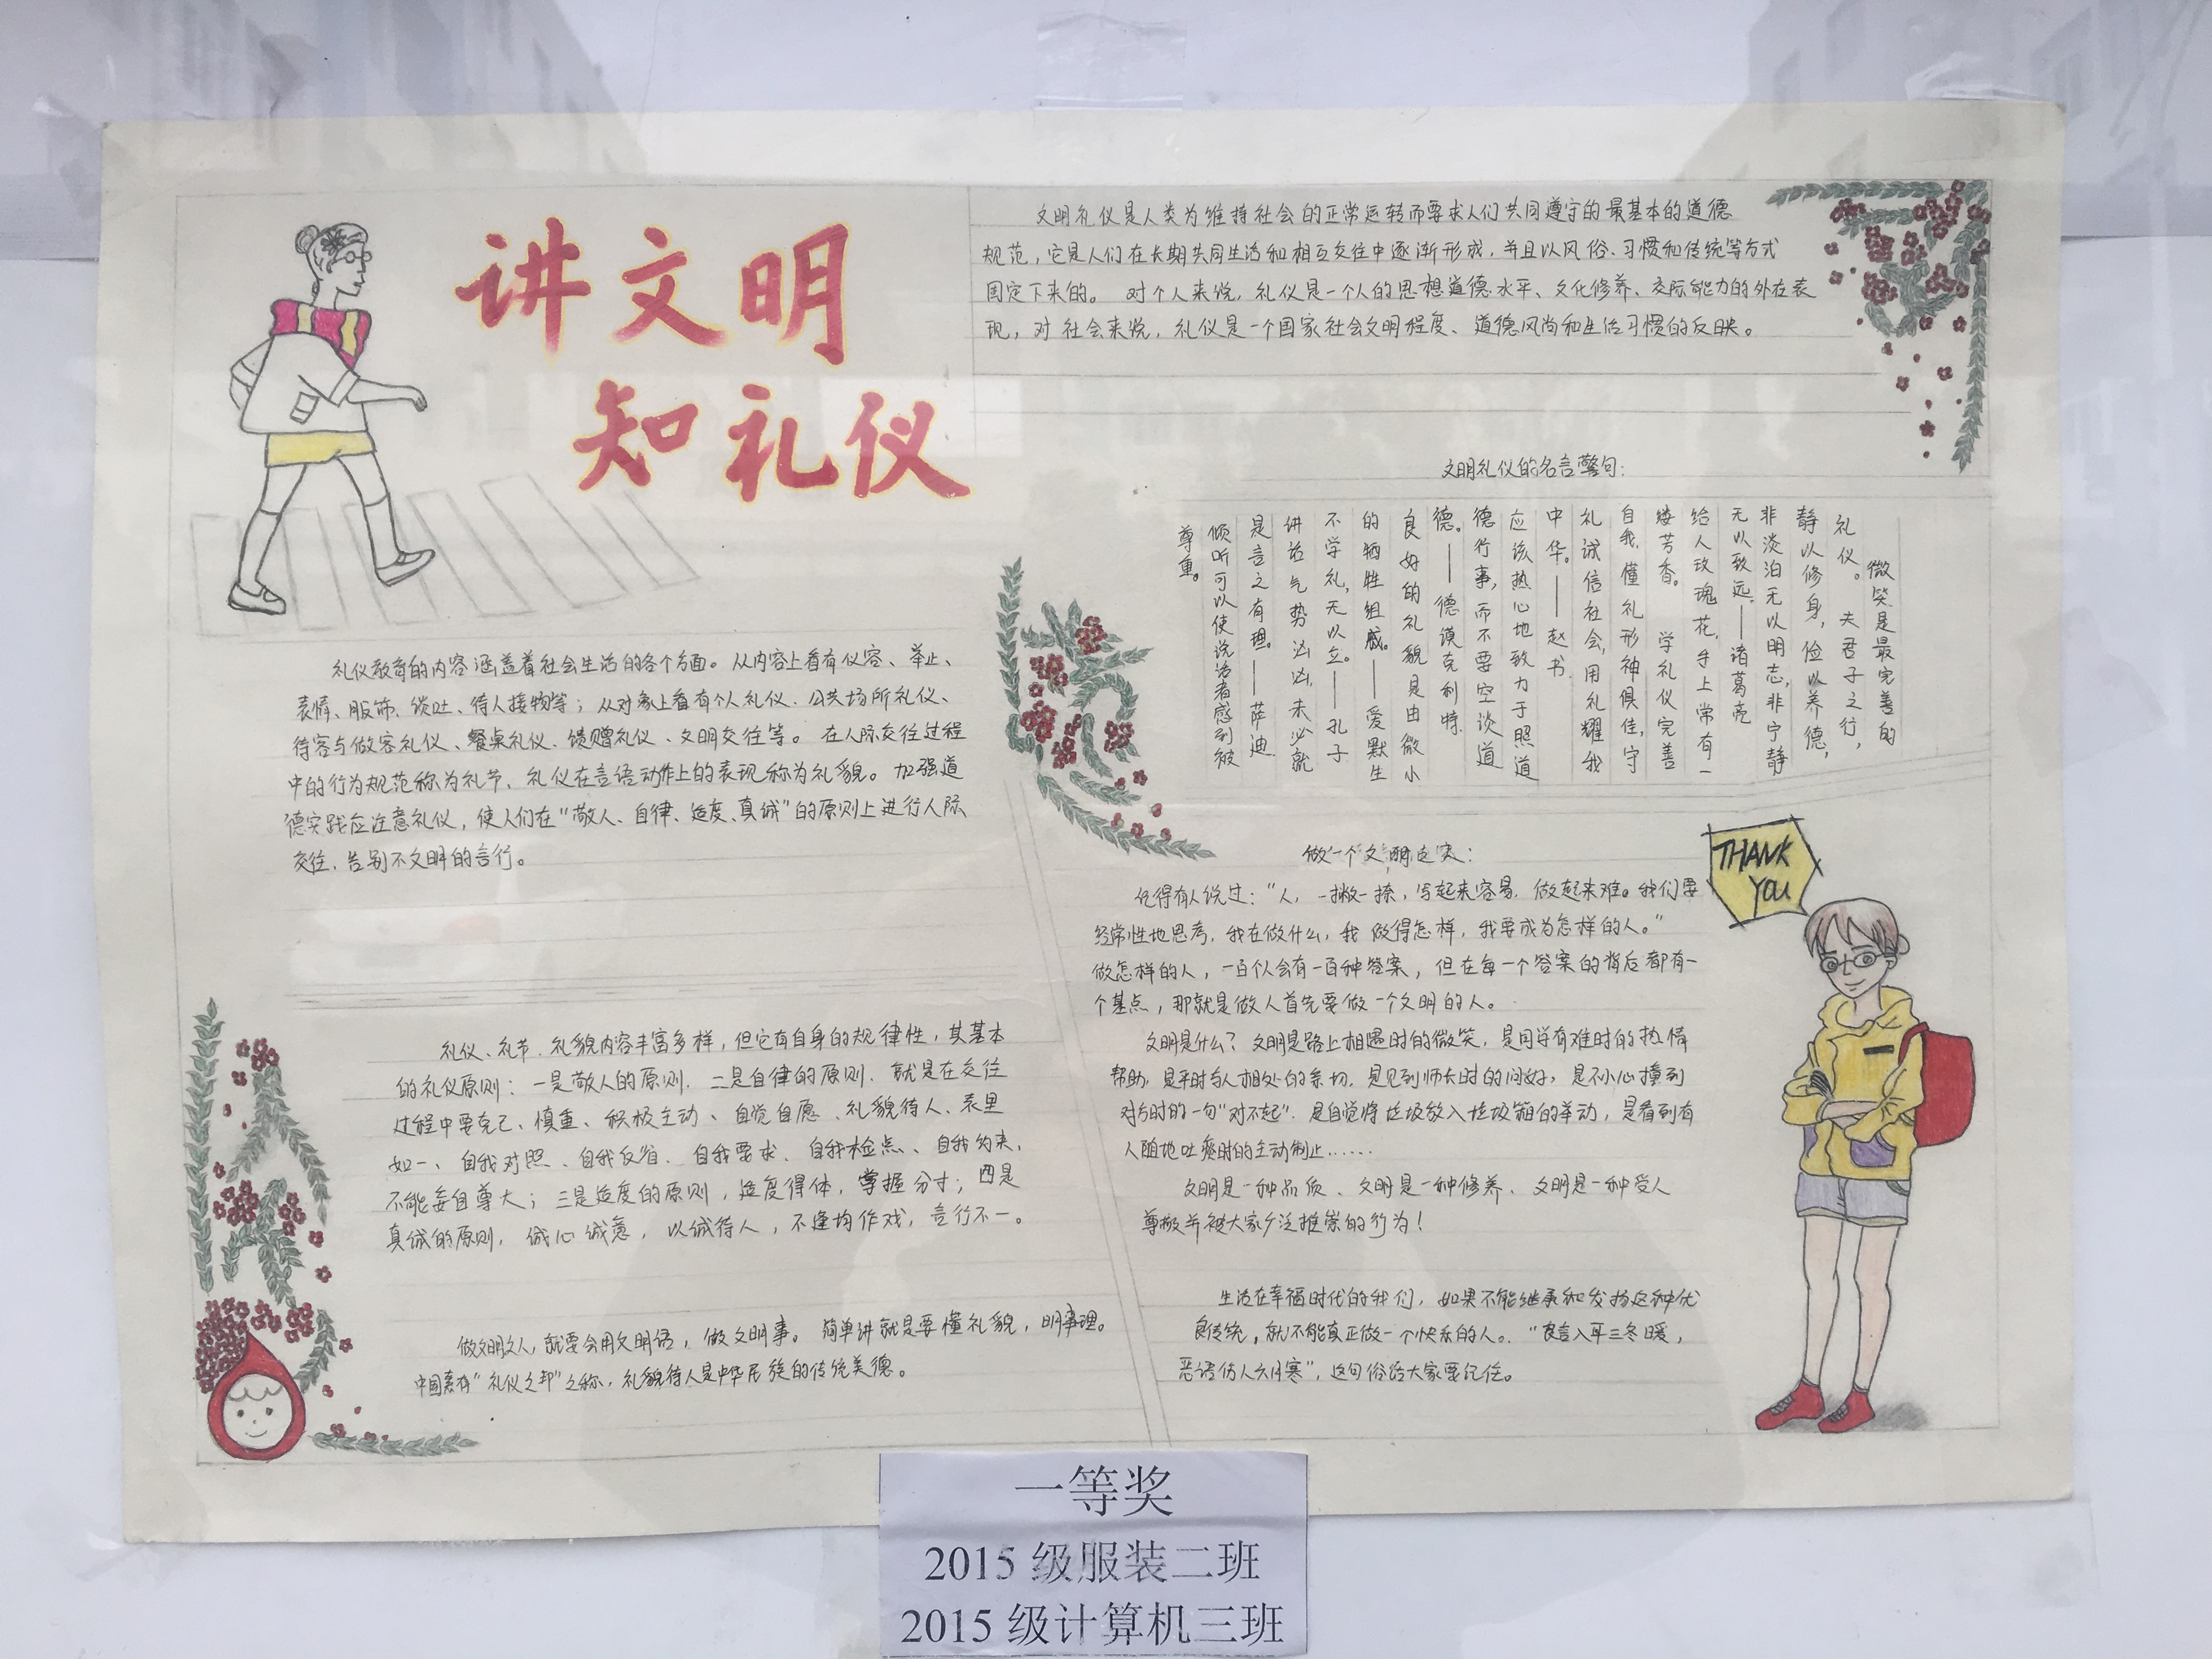 讲文明
知礼仪
文明礼仪是人类为维持社会的正常运转而要求人们共同遵守的最基本的道德
规范，它是人们在长期共同生活和相互交往中逐渐形成，并且以风俗、习惯和传统等方式
固定下来的。对个人来说，礼仪是一个人的思想道德水平、文化修养、交际能力的外在表
现，对社会来说，礼仪是一个国家社会文明程度、道德风尚和生活习惯的反映。
文明礼仪的名言警句：
微笑是最完善的
礼仪。夫君子之行，
静以修身，俭以养德，
非淡泊无以明志，非宁静
无以致远。——诸葛亮
给人玫瑰花，手上常有一
缕芳香。学礼仪完善
自我，懂礼形神俱佳，守
礼诚信社会，用礼耀我
中华。——赵书
应该热心地致力于照道
德行事，而不要空谈道
德。——德谟克利特
良好的礼貌是由微小
的牺牲组成。——爱默生
不学礼，无以立。——孔子
讲话气势汹汹，未必就
是言之有理。——萨迪
倾听可以使说话者感到被
尊重。
礼仪教育的内容涵盖着社会生活的各个方面。从内容上看有仪容、举止、
表情、服饰、谈吐、待人接物等；从对象上看有个人礼仪、公共场所礼仪、
待客与做客礼仪、餐桌礼仪、馈赠礼仪、文明交往等。在人际交往过程
中的行为规范称为礼节，礼仪在言语动作上的表现称为礼貌。加强道
德实践应注意礼仪，使人们在“敬人、自律、适度、真诚”的原则上进行人际
交往，告别不文明的言行。
礼仪、礼节、礼貌内容丰富多样，但它有自身的规律性，其基本
的礼仪原则：一是敬人的原则，二是自律的原则，就是在交往
过程中要克己、慎重、积极主动、自觉自愿、礼貌待人、表里
如一、自我对照、自我反省、自我要求、自我检点、自我约束，
不能妄自尊大；三是适度的原则，适度得体，掌握分寸；四是
真诚的原则，诚心诚意，以诚待人，不逢场作戏，言行不一。
做文明之人，就要会用文明语，做文明事。简单讲就是要懂礼貌，明事理。
中国素有“礼仪之邦”之称，礼貌待人是中华民族的传统美德。
做一个文明
记得有人说过：“人，一撇一捺，写起来容易，做起来难。我们要
经常性地思考，我在做什么，我做得怎样，我要成为怎样的人。”
做怎样的人，一百个人会有一百种答案，但在每一个答案的背后都有一
个基点，那就是做人首先要做一个文明的人。
文明是什么？文明是路上相遇时的微笑，是同学有难时的热情
帮助，是平时与人相处的亲切，是见到师长时的问好，是不小心撞到
对方时的一句“对不起”，是自觉将垃圾放入垃圾箱的举动，是看到有
人随地吐痰时的主动制止……
文明是一种品质、文明是一种修养、文明是一种受人
尊敬并被大家广泛推崇的行为！
生活在幸福时代的我们，如果不能继承和发扬这种优
良传统，就不能真正做一个快乐的人。“良言入耳三冬暖，
恶语伤人六月寒”，这句俗话大家要记住。
THANK
YOU
一等奖
2015 级服装二班
2015 级计算机三班